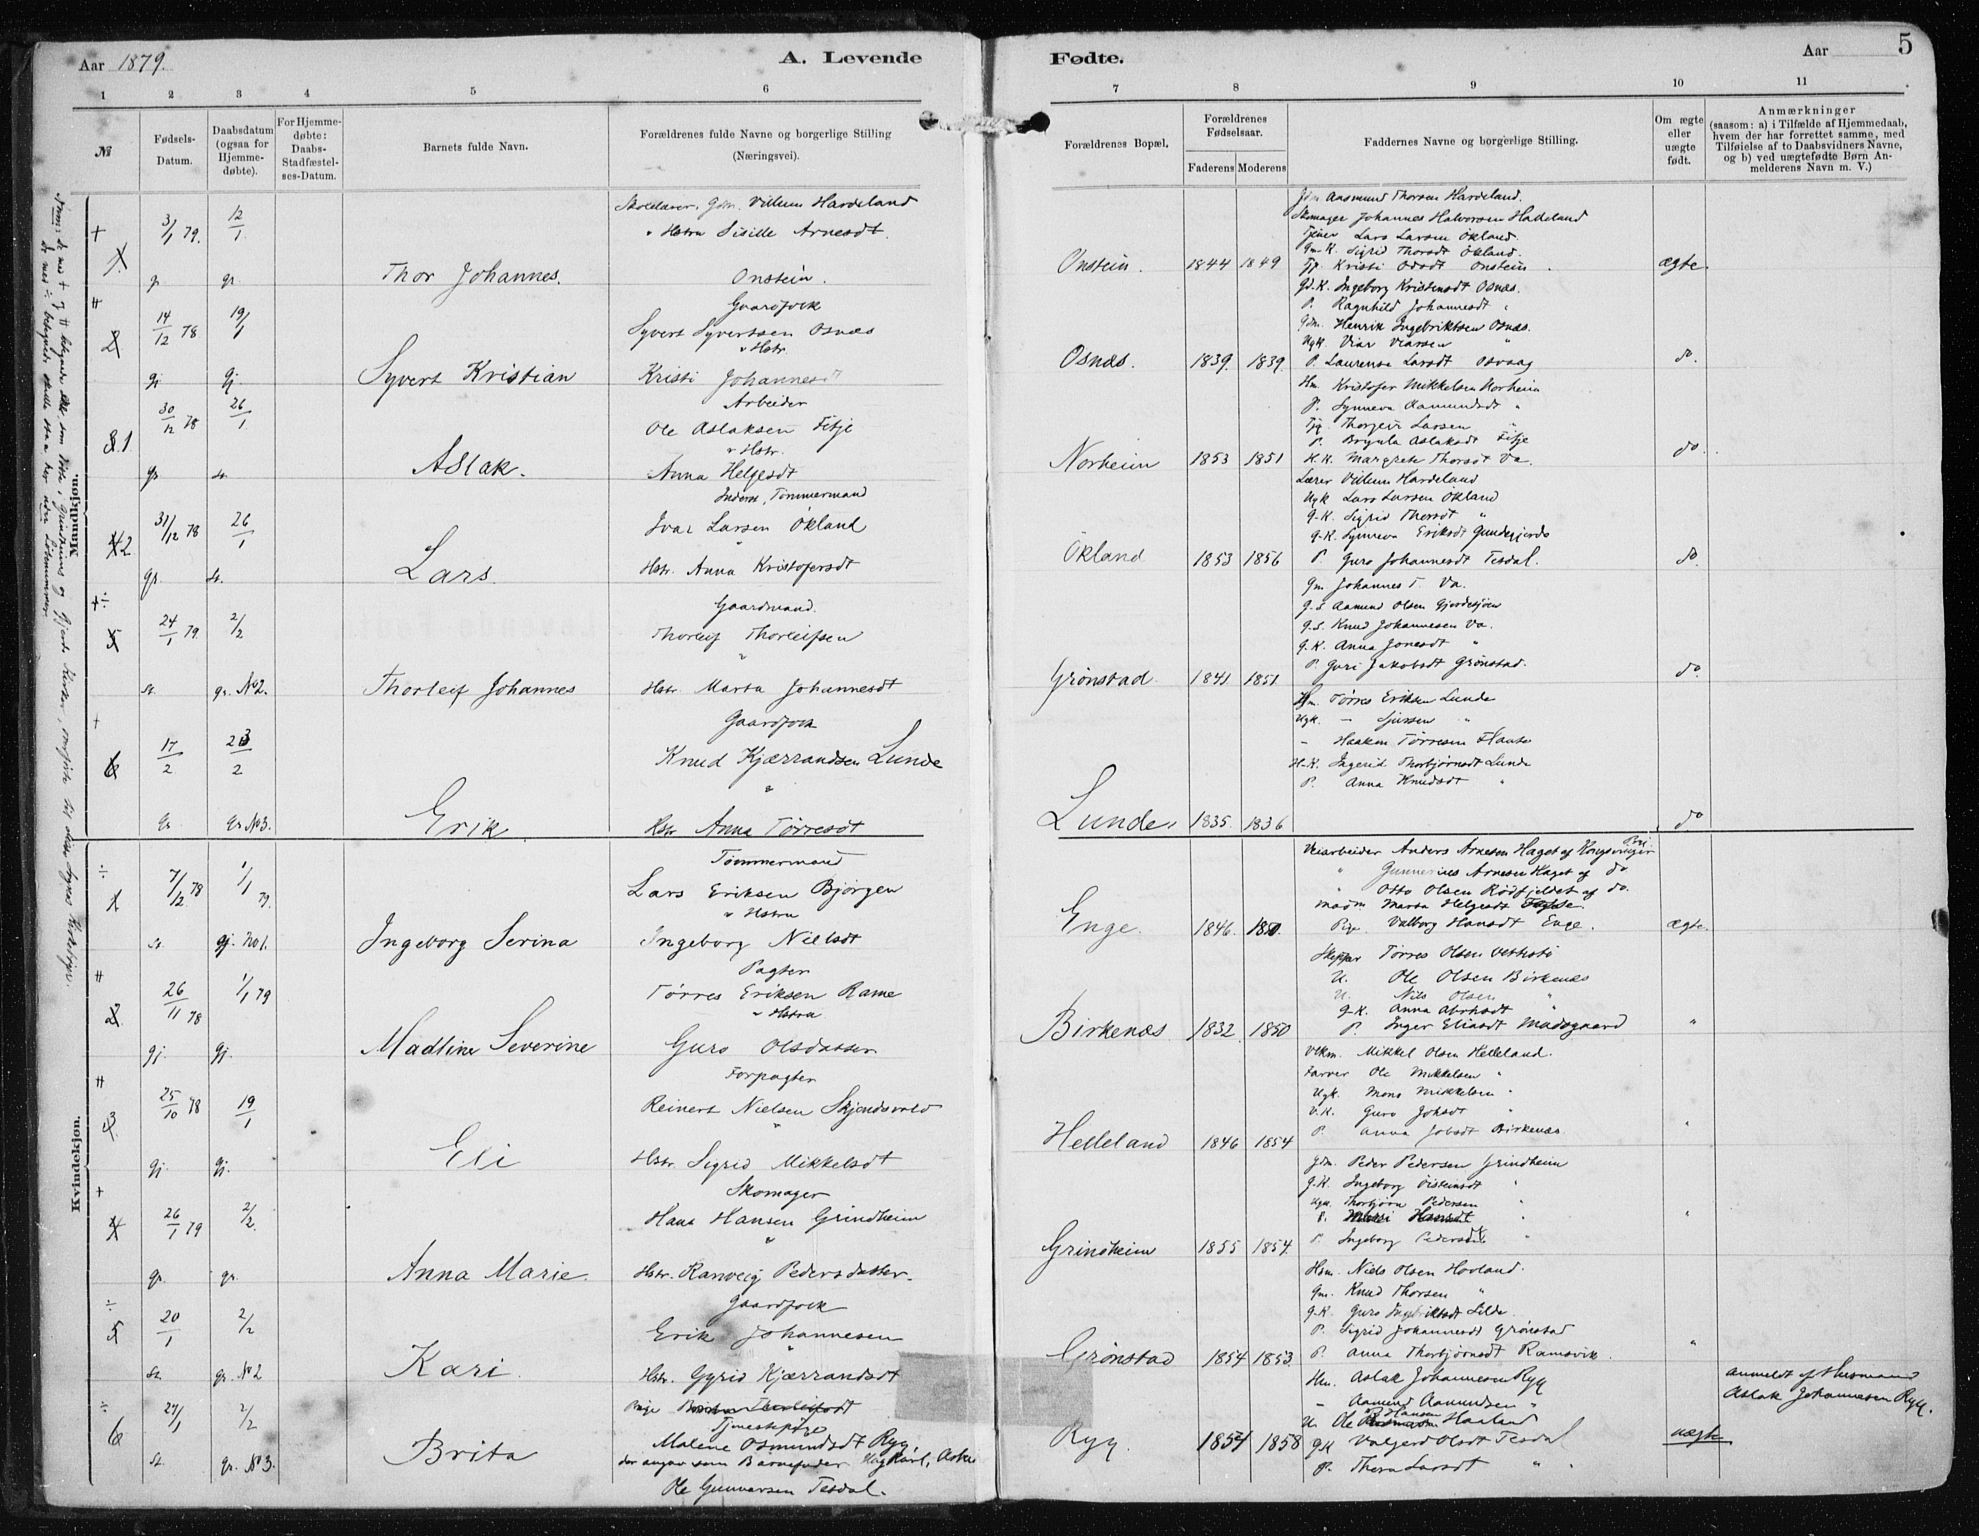 Aar 1879.
A. Levende
Fødte.
Aar
5
1 2 3 4 5 6 7 8 9 10 11
№
Fødsels-Datum.
Daabsdatum (ogsaa for Hjemme-døbte).
For Hjemme-døbte: Daabs-Stadfæstel-ses-Datum.
Barnets fulde Navn.
Forældrenes fulde Navne og borgerlige Stilling (Næringsvei).
Forældrenes Bopæl.
Forældrenes Fødselsaar.
Faderens Moderens
Faddernes Navne og borgerlige Stilling.
Om ægte eller uægte født.
Anmærkninger
(saasom: a) i Tilfælde af Hjemmedaab, hvem der har forrettet samme, med Tilføielse af to Daabsvidners Navne, og b) ved uægtefødte Børn An-melderens Navn m. V.)
Mandkjøn.
+ 1. 3/1 79. 12/1
gr. gr.
Thor Johannes.
Skolelærer, Gdm. Villum Hardeland
" Hstru Sisille Arnesdt.
Onstein.
Onstein. 1844 1849
Gdm Aasmund Thorsen Hardeland.
Skomager Johannes Halvorsen Hadeland
Tjener Lars Larsen Økland.
Gm. K. Sigrid Thorsdt Økland.
Tp. Kristi Odsdt Onstein
Gd. K. Ingeborg Kristensdt Osnæs.
P. Ragnhild Johannesdt "
ægte.
# 2 14/12 78 19/1
gj. gj.
Syvert Kristian
Gaardfolk
Syvert Syvertsen Osnæs
" Hstr.
Kristi Johannesdt
Osnæs. 1839. 1839.
Gdm. Henrik Ingebriktsen Osnæs.
Ugk. Viar Viarsen "
P. Laurense Larsdt Osvaag
do.
3 1 30/12 78 26/1
gr. st.
Aslak.
Arbeider
Ole Aslaksen Fitje
" Hstr.
Anna Helgesdt
Norheim 1853 1851
Hm. Kristofer Mikkelsen Norheim
P. Synneva Aamundsdt "
Thorgeir Larsen "
P. Brynla Aslaksdt Fitje
K. K. Margrete Thorsdt Va.
do.
4 2 31/12 78 26/1
gr. st.
Lars.
Inderst, Tømmermand
Ivar Larsen Økland
"
Hstr. Anna Kristofersdt
Økland 1853 1856
Lærer Villum Hardeland
Ugk Lars Larsen Økland
G-K. Sigrid Thorsdt "
G-K. Synneva Eriksdt Gundegjerde
P. Guro Johannesdt Tesdal.
do.
+÷ 5 24/1 79 2/2
st. gr. № 2.
Thorleif Johannes
Gaardmand.
Thorleif Thorleifsen
"
Hstr Marta Johannesdt
Grønstad. 1841 1851
Gm Johannes T. Va.
G-S. Aamund Olsen Gjerdesjøen
G.S. Knud Johannesen Va.
G.K. Anna Jonesdt "
P. Guri Jakobsdt Grønstad.
do.
+ 6 17/2 23/2
gr gr № 3.
Erik
Gaardfolk
Knud Kjærrandsen Lunde
"
Hstr Anna Tørresdt
Lunde. 1835. 1836
Hm. Tørres Eriksen Lunde
Ugk. – Sjursen "
– Haaken Tørresen Flaate
H-K. Ingerid Thorbjørnsdt Lunde
P. Anna Knudsdt "
do
Kvindekjøn.
÷ 1 7/12 78 1/1 79.
st. gj. No 1.
Ingeborg Serina
Tømmermand
Lars Eriksen Bjørgen
" Hstru
Ingeborg Nielsdt
Enge. 1846. 1850.
Veiarbeider Anders Arnesen Haget af Kongsvinger
" Gunnerius Arnesen Haget af do
" Otto Olsen Rødfjeldet af do.
Madm Marta Helgesdt
Pige Valborg Hansdt Enge.
ægte.
# 2 26/11 78 1/1 79
gj. gj.
Madline Severine
Pagter
Tørres Eriksen Rame
" Hstru
Guro Olsdatter
Birkenæs 1832 1850
Skipper Tørres Olsen Vethstø
U. Ole Olsen Birkenæs
U. Nils Olsen "
G-K. Anna Abrhsdt "
P. Inger Eliasdt Madsgaard
"
# 3 25/10 78 19/1
gj. gj.
Eli
Forpagter
Reinert Nielsen Skjendsvold
"
Hstr. Sigrid Mikkelsdt
Helleland 1846 1854
Mikkel Olsen Helleland.
Farver Ole Mikkelsen "
Ugk. Mons Mikkelsen "
V.K. Guro Johsdt "
P. Anna Jobsdt Birkenæs.
"
+ 4 26/1 79 2/2.
gr. gr.
Anna Marie.
Skomager
Hans Hansen Grindheim
"
Hstr. Ranveig Pedersdatter.
Grindheim 1855 1854
Gdm. Peder Pedersen Grindheim
G.K. Ingeborg Øisteinsdt "
Ugk. Thorbjørn Pedersen "
P. Ingeborg Pedersdt "
"
÷ 5 20/1 2/2
st. gr. № 2
Kari
Gaardfolk
Erik Johannesen
"
Hstr. Gyrid Kjærrandsdt
Grønstad 1854 1853
Hsm. Niels Olsen Hovland.
Gm. Knud Thorsen "
G.K. Guro Ingebriktsdt Silde.
P. Sigrid Johannesdt Grønstad
P. Anna Thorbjørnsdt Ramsvik.
"
÷ 6 27/1 2/2
st. gr. № 3.
Brita
Pige
Tjenestepige
Malene Osmundsdt Ryg
der angav som Barnefader Ugkarl,
Ole Gunnarsen Tesdal.
Ryg. 1854 1858
Hm. Aslak Johannesen Ryg
– Aamund Aamundsen "
U. Ole Hansen Haaland
G K Valgerd Olsdt Tesdal
P. Thera Larsdt " "
uægte
Anmeldt af Husmand
Aslak Johannesen Ryg.